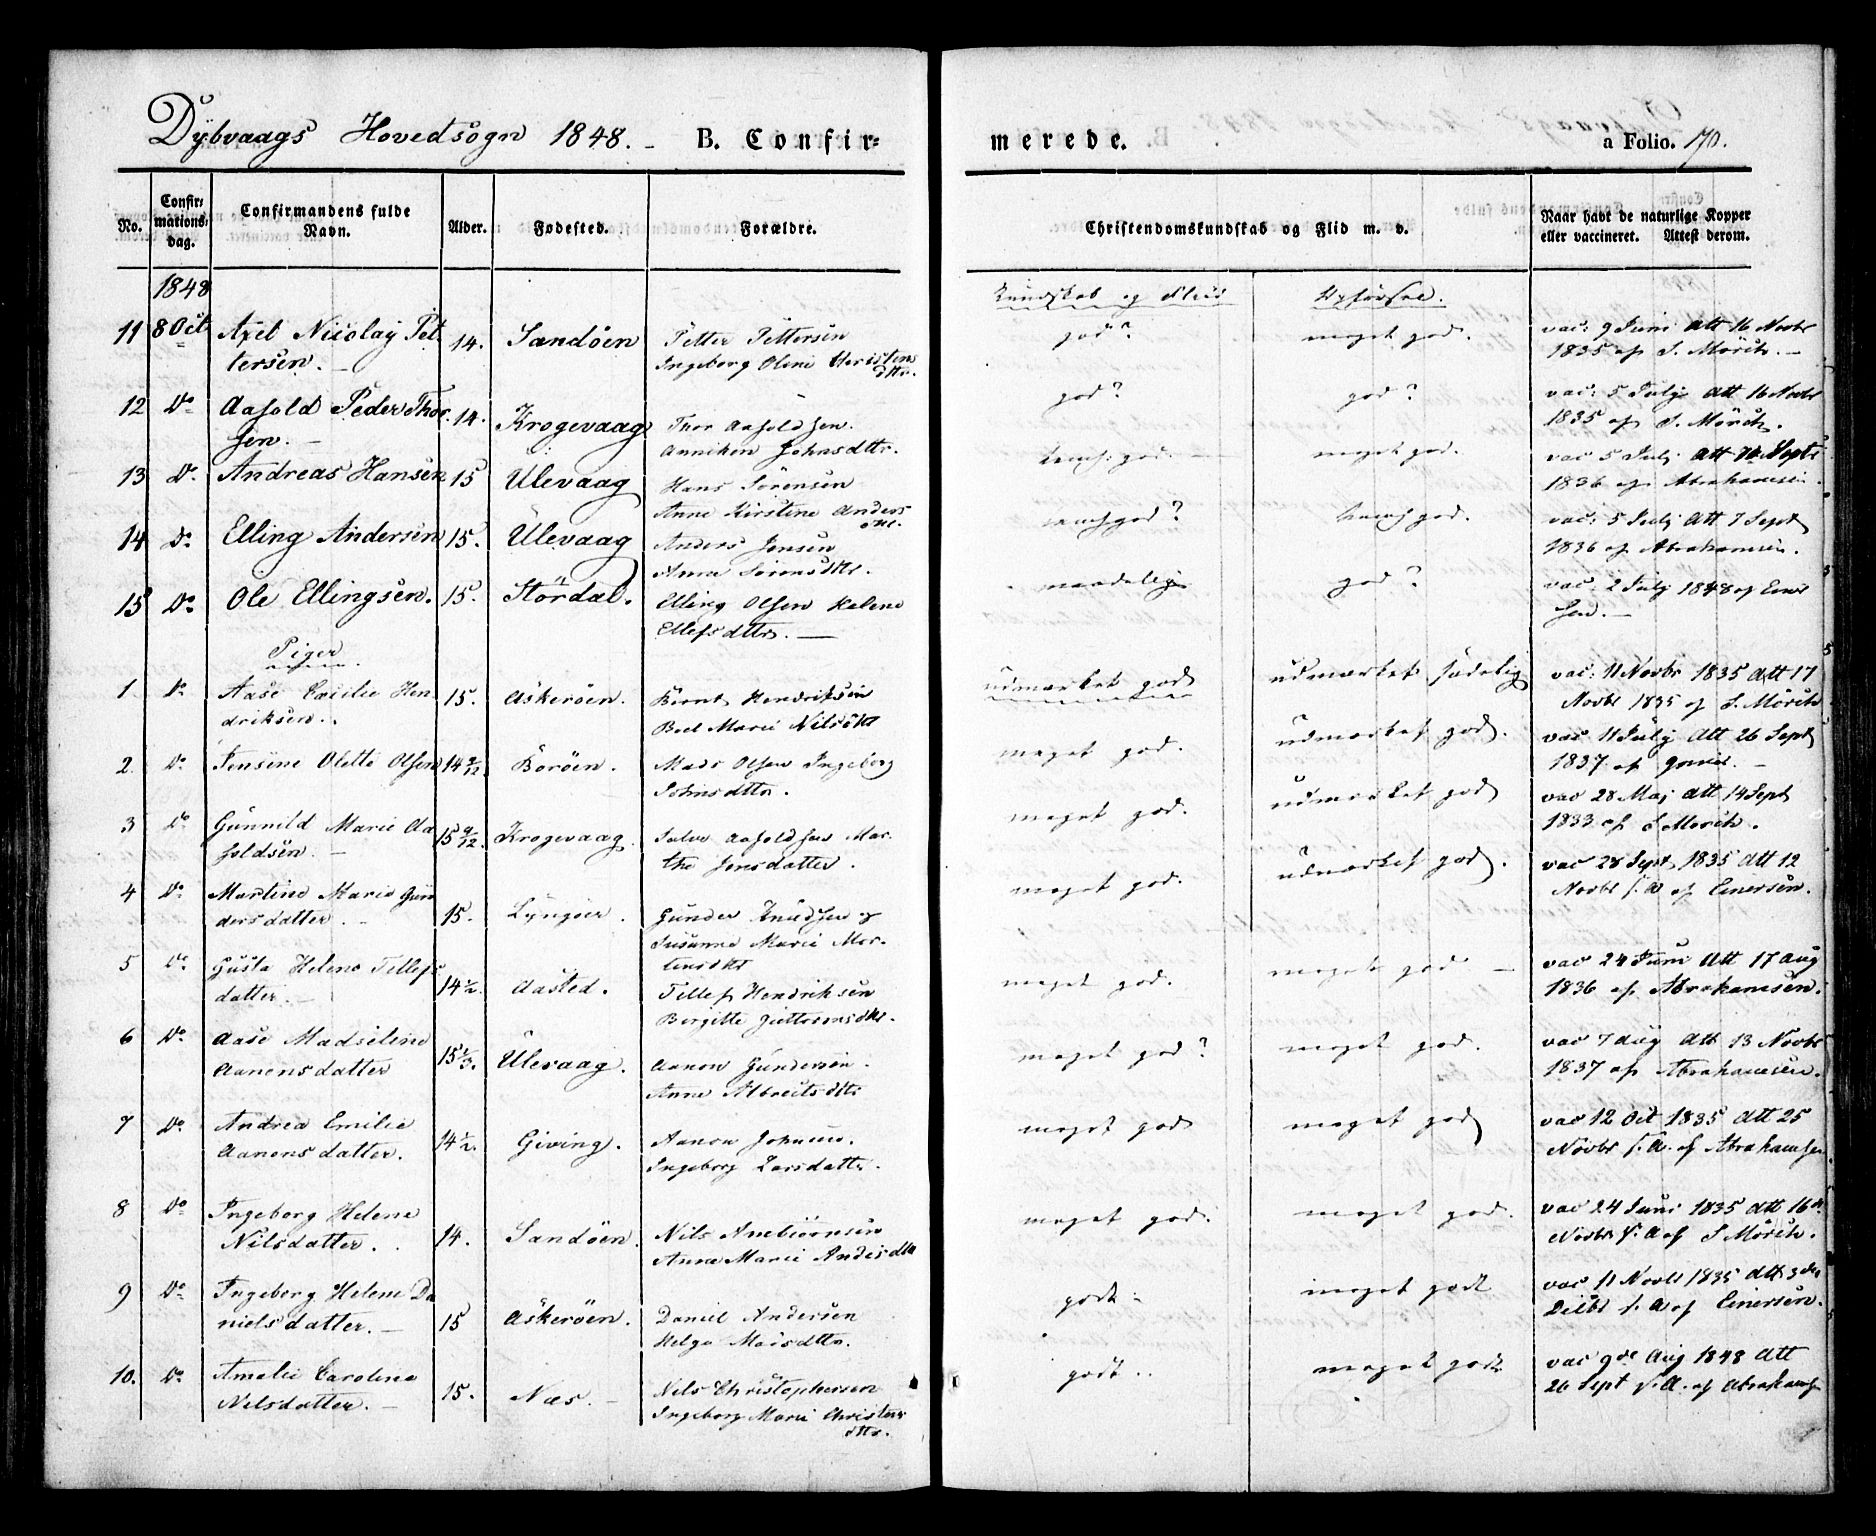 Dÿbvaags Hovedsogn 1848. - B. Confir-
merede.
a Folio. 170.
No.
Confir-
mations-
dag.
Confirmandens fulde
Navn.
Alder.
Fødested.
Forældre.
Christendomskundskab og Flid m. v.
Naar havt de naturlige Kopper
eller vaccineret. Attest derom.
1848
Kundskab og Flid
Opførsel.
11 8 Oct Axel Nicolay Pet
tersen. -
14.
Sandöen
Petter Pettersen
Ingeborg Oline Christens
dttr.
god?
meget god.
vac: 9 Juni Att 16 Novbr
1835 af S. Mörch. -
12 Do Aasold Peder Thor
sen. -
14.
Krogevaag
Thor Aasoldsen.
Anniken Johnsdttr.
god?
god?
vac: 5 Julj Att 16 Novbr
1835 af S. Mörch.
13 Do Andreas Hansen
15
Ulevaag
Hans Sörensen
Anne Kirstine Anders
dttr.
god.
meget god.
vac 5 Julj Att Septr
1836 af Abrahamsen
14 Do Elling Andersen
15.
Ulevaag
Anders Jensen
Anna Sörensdttr.
god?
god.
vac: 5 Julj Att 7 Sept
1836 af Abrahamsen.
15 Do Ole Ellingsen.
15.
Stördal.
Elling Olsen Helene
Ellefsdttr. -
maadelig
god?
vac. 2 Julj 1848 af Einer
sen. -
Piger
1 Do Aase Cecilie Hen
driksen.
15.
Askeröen.
Bernt Hendriksen
Berl Marie Nilsdtt
udmærket god
udmærket sædelig
vac: 11 Novbr 1835 Att 17
Novbr 1835 af S. Mörch
2. Do Jensine Olette Olsen
14 9/12
Boröen.
Mads Olsen Ingeborg
Johnsdttr.
meget god.
udmærket god.
vac 11 Julj Att 26 Sept
1837 af
3 Do Gunnild Marie Aa
soldsen. -
15 9/12
Krogevaag.
Salve Aasoldsen Mar
the Jensdatter.
meget god.
udmærket god
vac 28 Maj Att 14 Sept
1833 af S Mörch.
4 Do Martine Marie Gun
dersdatter. -
15.
Lyngöer.
Gunder Knudsen og
Susanne Marie Mor-
tensdtt
meget god.
udmærket god.
vac 28 Sept 1835 Att 12
Novbr s. A af Einersen.
5 Do Gusta Helene Tellefs
datter. -
14 1/2.
Aasted.
Tellef Hendriksen
Birgitte Guttormsdtr.
meget god.
meget god -
vac 24 Juni Att 17 Aug
1836 af Abrahamsen.
6 Do Aase Madseline
Aanensdatter
15 1/3.
Ulevaag.
Aanon Gundersen.
Anne Albretsdtr
meget god?
meget god.
vac 7 Aug Att 13 Novbr
1837 af Abrahamsen.
7 Do Andrea Emilie
Aanensdatter.
14 1/2.
Giving.
Aanon Johnsen.
Ingeborg Larsdatter.
meget god
meget god
vac 12 Oct 1835 Att 25
Novbr s. A. af Abrahamsen
8 Do Ingeborg Helene
Nilsdatter.
14.
Sandöen.
Nils Anebiörnsen
Anna Marie Andersdtr
meget god.
meget god.
vac 24 Juni 1835 Att 16de
Novbr s. A af S Mörch.
9 Do Ingeborg Helene Da
nielsdatter. -
15
Askeröen.
Daniel Andersen
Helga Madsdttr.
godt.
meget godt
vac 11 Novbr 1835 Att 3die
Decbr s. A af Einersen.
10. Do Amalie Caroline
Nilsdatter. -
15.
Næs. -
Nils Christophersen
Ingeborg Marie Christens
dttr.
godt..
meget godt
vac 9de Aug 1848 Att
26 Sept s. A. af Abrahamsen